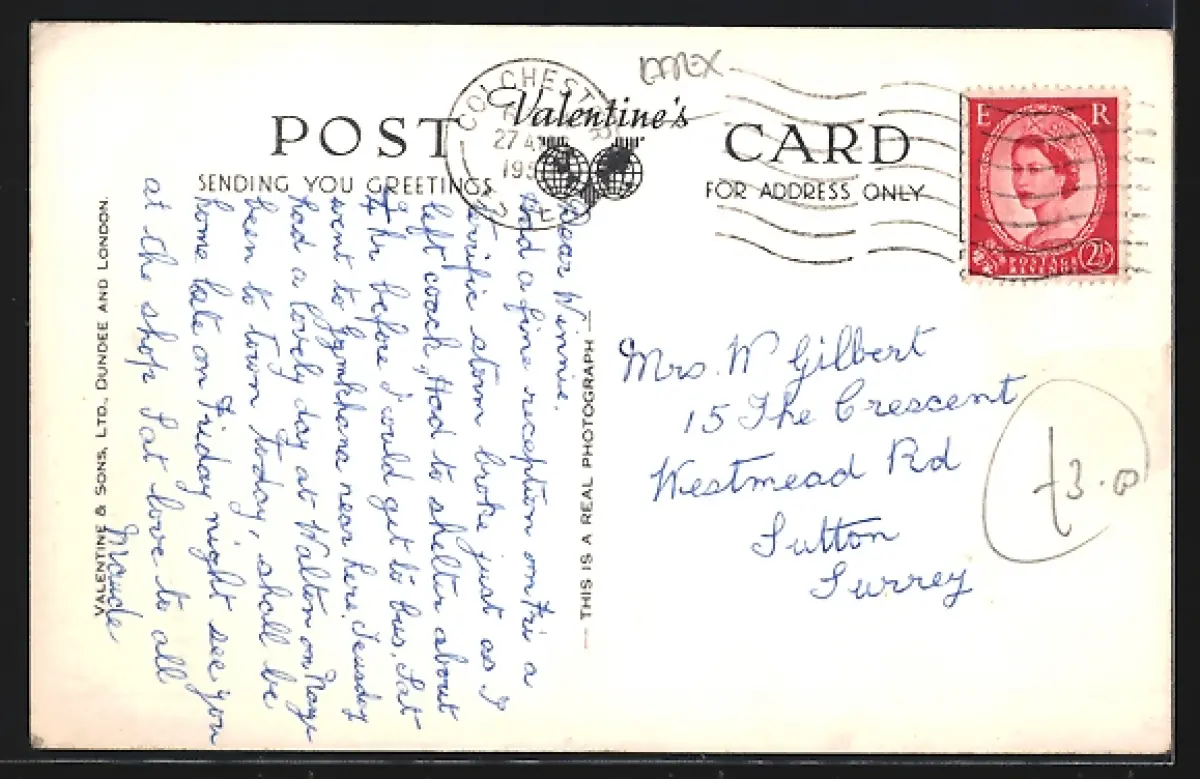 POST CARD
Valentine's
SENDING YOU GREETINGS
FOR ADDRESS ONLY
COLCHEST
27 A
195
E R
POSTAGE
REVENUE
2½
Dear Winnie.
Had a fine reception on Fri a
terrific storm broke just as I
left coach, Had to shelter about
hr before I would get to bus, Sat
went to Gymkhana near here. Teusday
had a lovely day at Walton on Naze
been to town today, shall be
home late on Friday night see you
at the shop Sat love to all
Maude
VALENTINE & SONS, LTD., DUNDEE AND LONDON.
THIS IS A REAL PHOTOGRAPH
Mrs. W Gilbert
15 The Crescent
Westmead Rd
Sutton
Surrey
£3.00